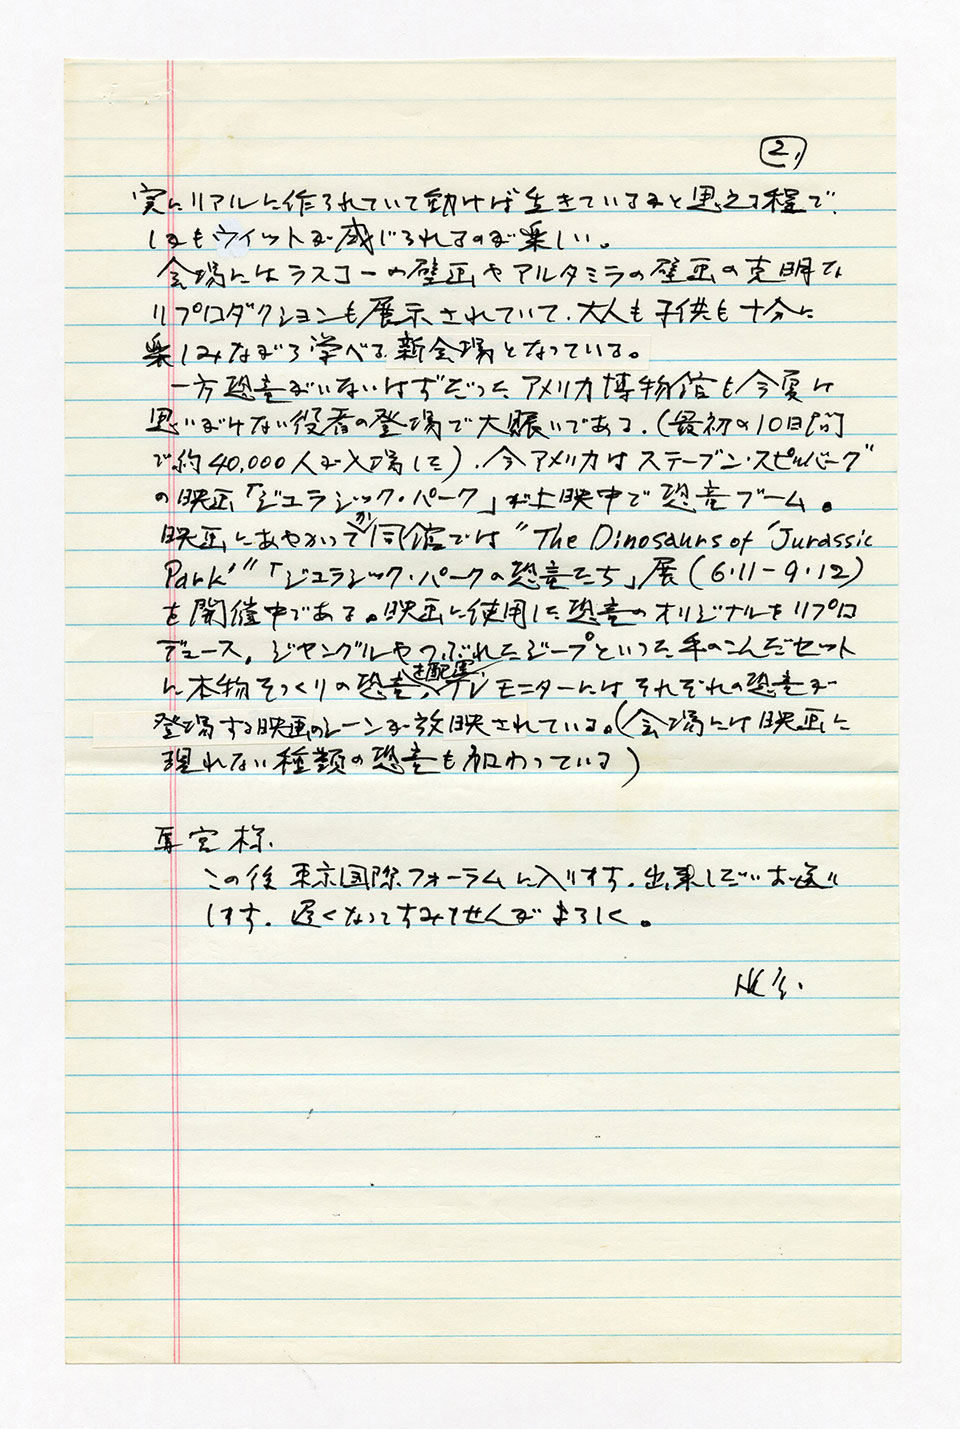 2,
実にリアルに作られていて動けば生きているかと思える程で、
しかもウィットが感じられるのが楽しい。
会場にはラスコーの壁画やアルタミラの壁画の克明な
リプロダクションも展示されていて、大人も子供も十分に
楽しみながら学べる新会場となっている。
一方恐竜がいないはずだったアメリカ博物館も今夏は
思いがけない役者の登場で大賑いである。(最初の10日間
で約40,000人が入場した)。今アメリカはステーブン・スピルバーグ
の映画「ジュラシック・パーク」が上映中で恐竜ブーム。
映画にあやかってか同館では“The Dinosaurs of ‘Jurassic
Park’”「ジュラシック・パークの恐竜たち」展(6・11-9・12)
を開催中である。映画に使用した恐竜のオリジナルをリプロ
デュース。ジャングルやつぶれたジープといった手のこんだセット
に本物そっくりの恐竜を配置、TVモニターにはそれぞれの恐竜が
登場する映画のシーンが放映されている。(会場には映画に
現れない種類の恐竜も加わっている)
宮様.
この後東京国際フォーラムに入ります。出来しだいお送り
します。遅くなってすみませんがよろしく。